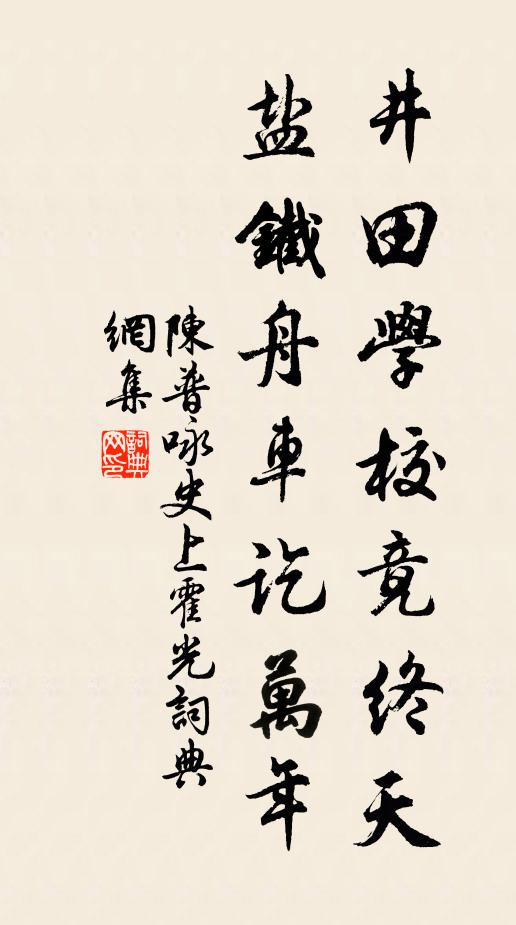 井田學校竟終天
盐鐵舟車訖萬年
陳普咏史上霍光詞典
網集
詞典網印